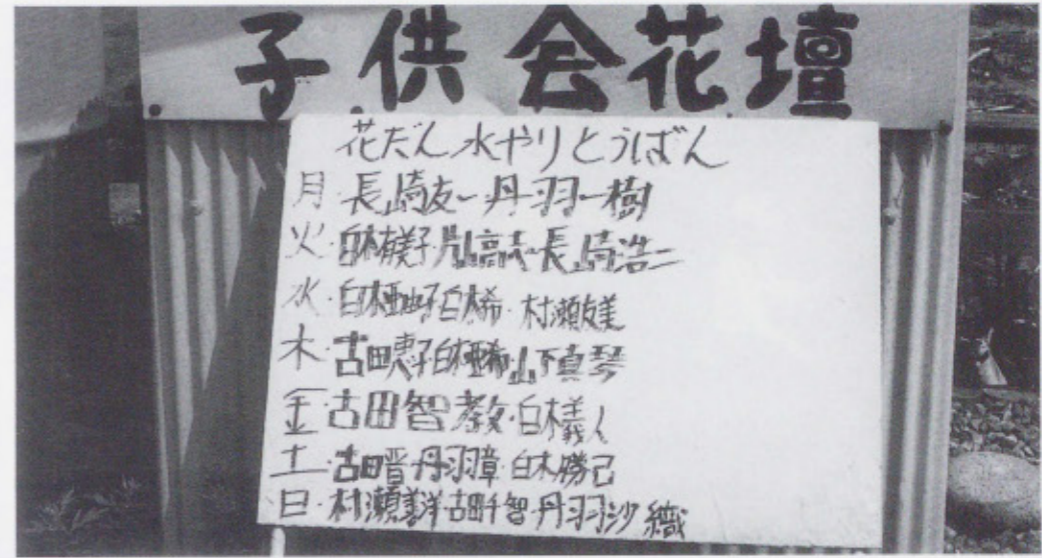 子供会花壇
花だん水やりとうばん
月・長崎友一・丹羽一樹
火・白木有美子・片山高志・長崎浩二
水・白木亜由子・白木希・村瀬友美
木・古田恵子・白木亜希・山下真琴
金・古田智教・白木義人
土・古田晋・丹羽章・白木勝己
日・村瀬美洋・古田千智・丹羽沙織